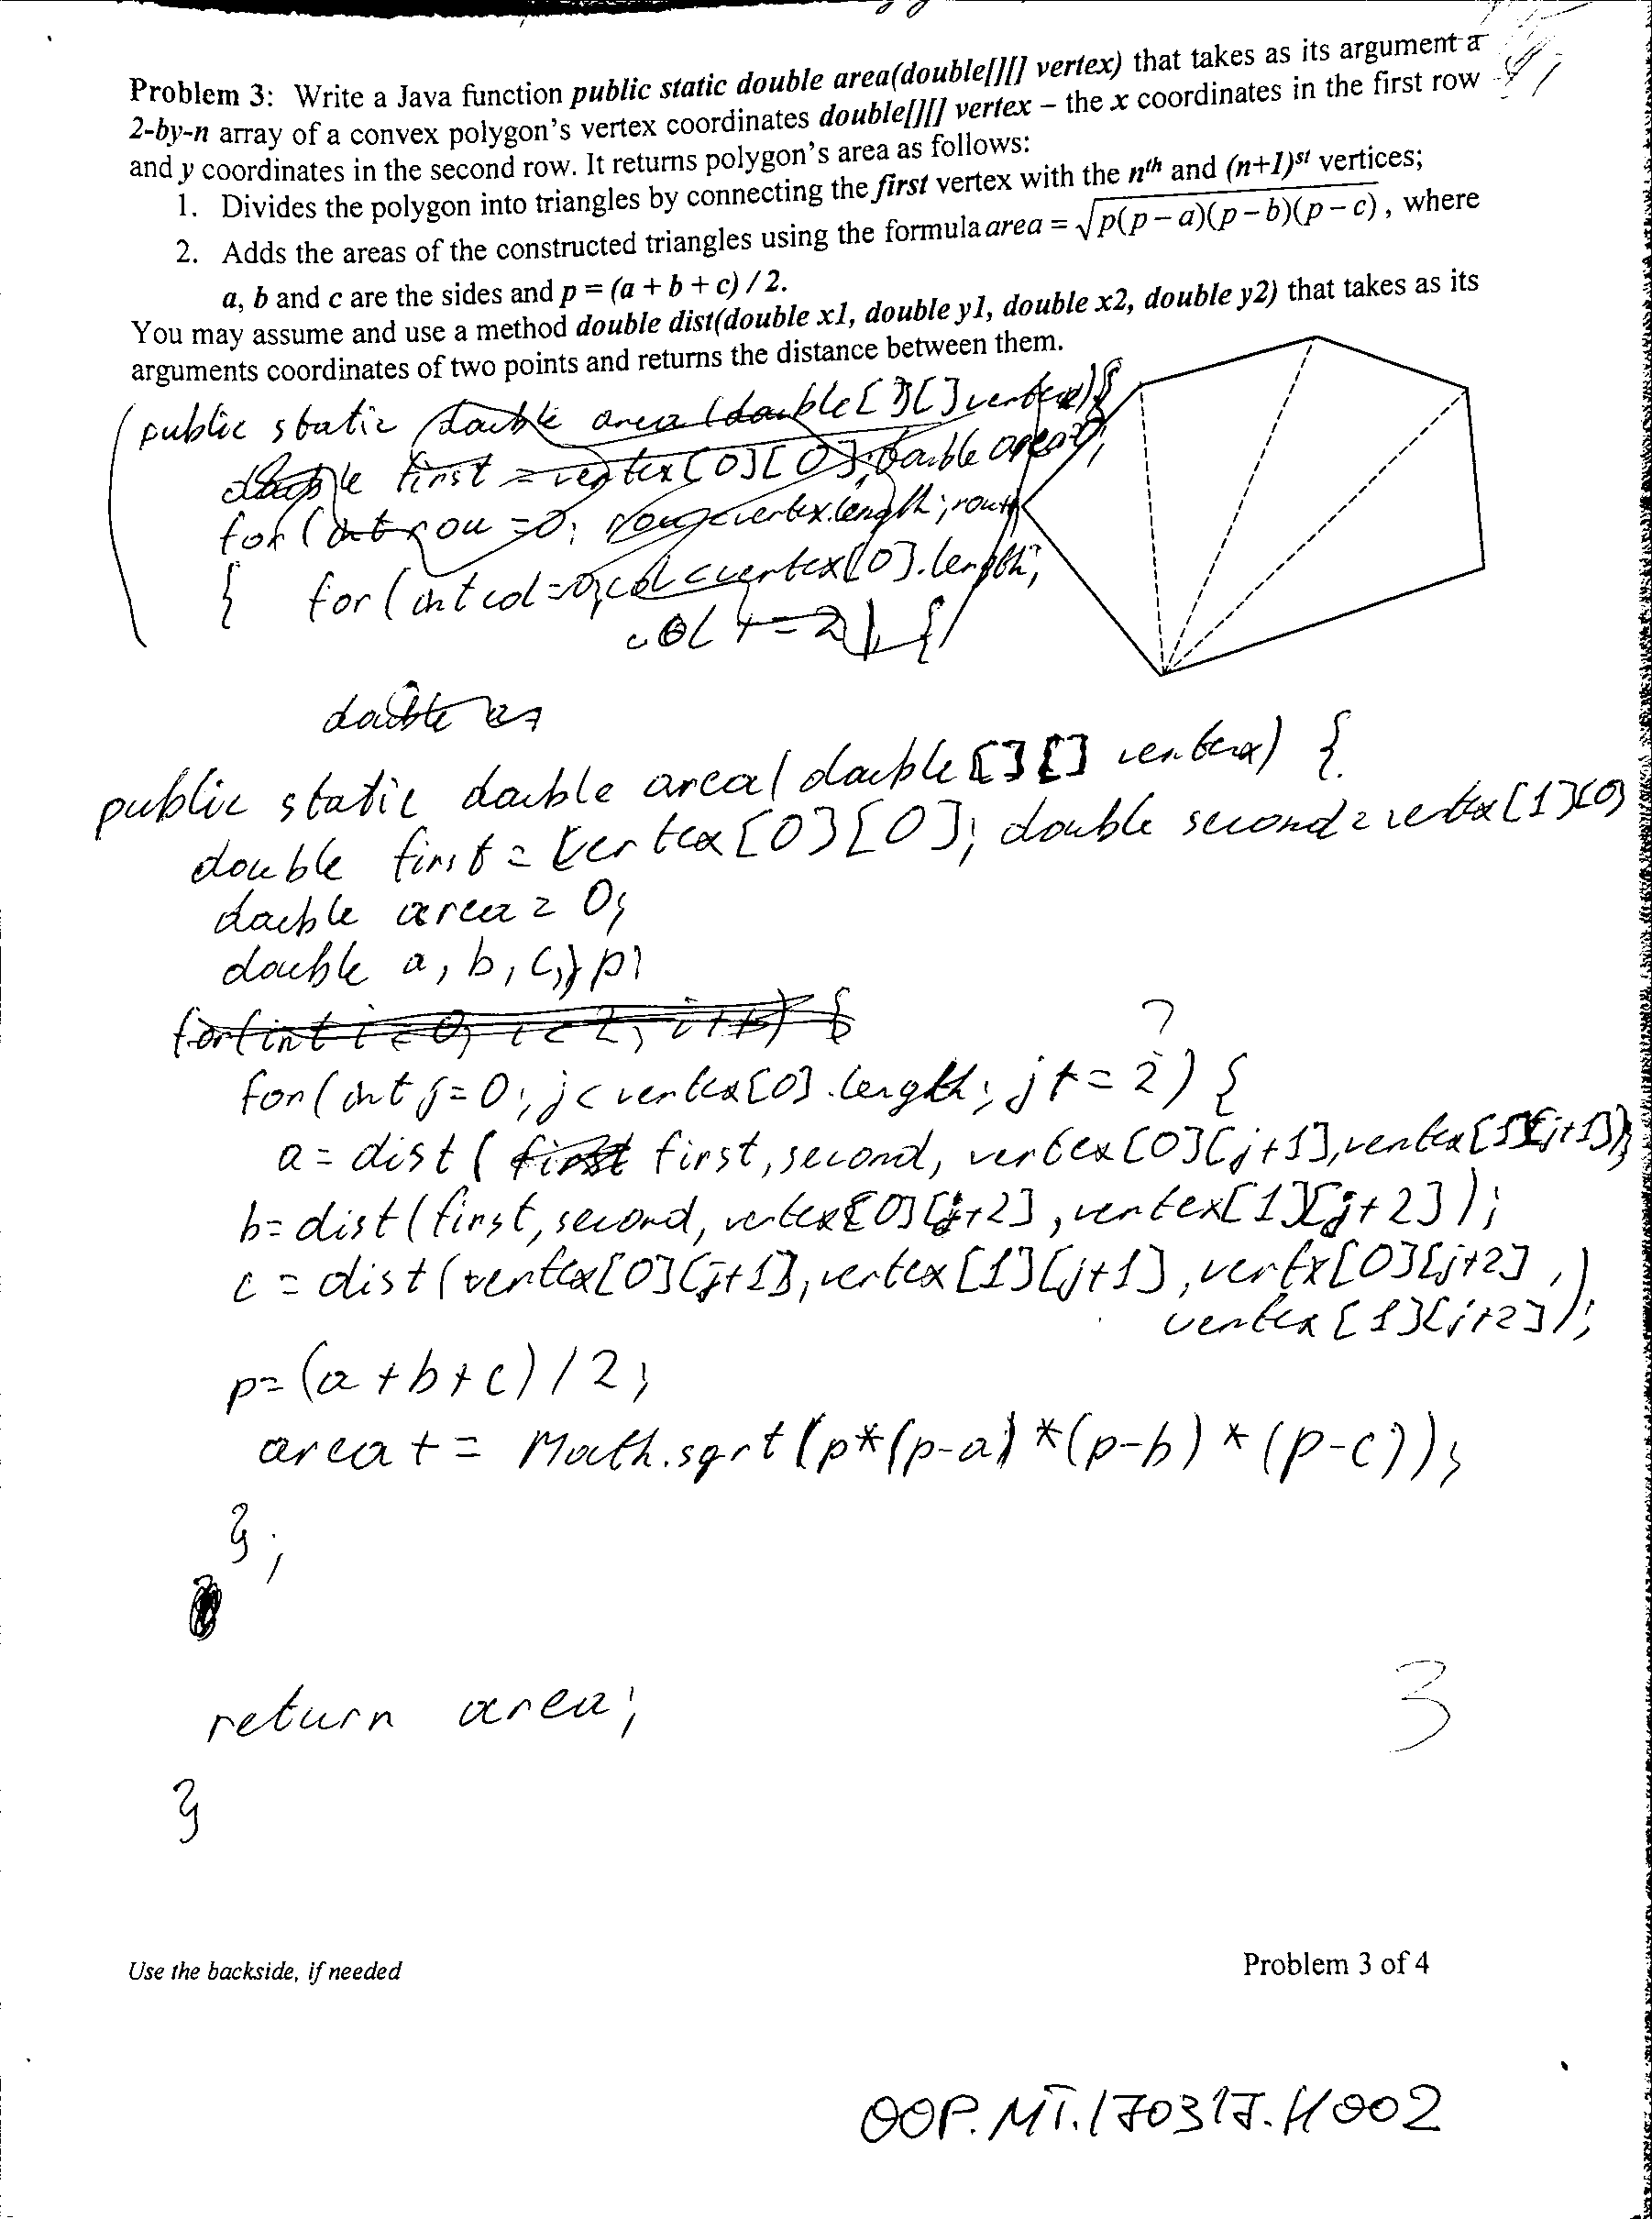 Problem 3: Write a Java function public static double area(double[][] vertex) that takes as its argument a
2-by-n array of a convex polygon's vertex coordinates double[][] vertex – the x coordinates in the first row
and y coordinates in the second row. It returns polygon's area as follows:
1. Divides the polygon into triangles by connecting the first vertex with the nth and (n+1)st vertices;
2. Adds the areas of the constructed triangles using the formula area = √p(p – a)(p – b)(p – c), where
a, b and c are the sides and p = (a + b + c) / 2.
You may assume and use a method double dist(double x1, double y1, double x2, double y2) that takes as its
arguments coordinates of two points and returns the distance between them.
public static double area (double[][] vertex){
double first = vertex[0][0]; double area
for (int row = 0; row < vertex.length; row++
{ for (int col = 0; col < vertex[0].length;
col += 2) {
double
public static double area( double[][] vertex) {
double first = vertex[0][0]; double second = vertex[1][0]
double area = 0;
double a, b, c, p;
for(int i = 0; i < 2; i++) {
?
for(int j=0; j< vertex[0].length; j+=2) {
a = dist ( first first, second, vertex[0][j+1], vertex[1][j+1]);
b= dist(first, second, vertex[0][j+2], vertex[1][j+2]);
c = dist(vertex[0][j+1], vertex[1][j+1], vertx[0][j+2],
vertex[1][j+2]);
p=(a+b+c)/2;
area += Math.sqrt(p*(p-a)*(p-b)*(p-c));
};
return area;
3
}
Use the backside, if needed
Problem 3 of 4
OOP.MT.170317.H002